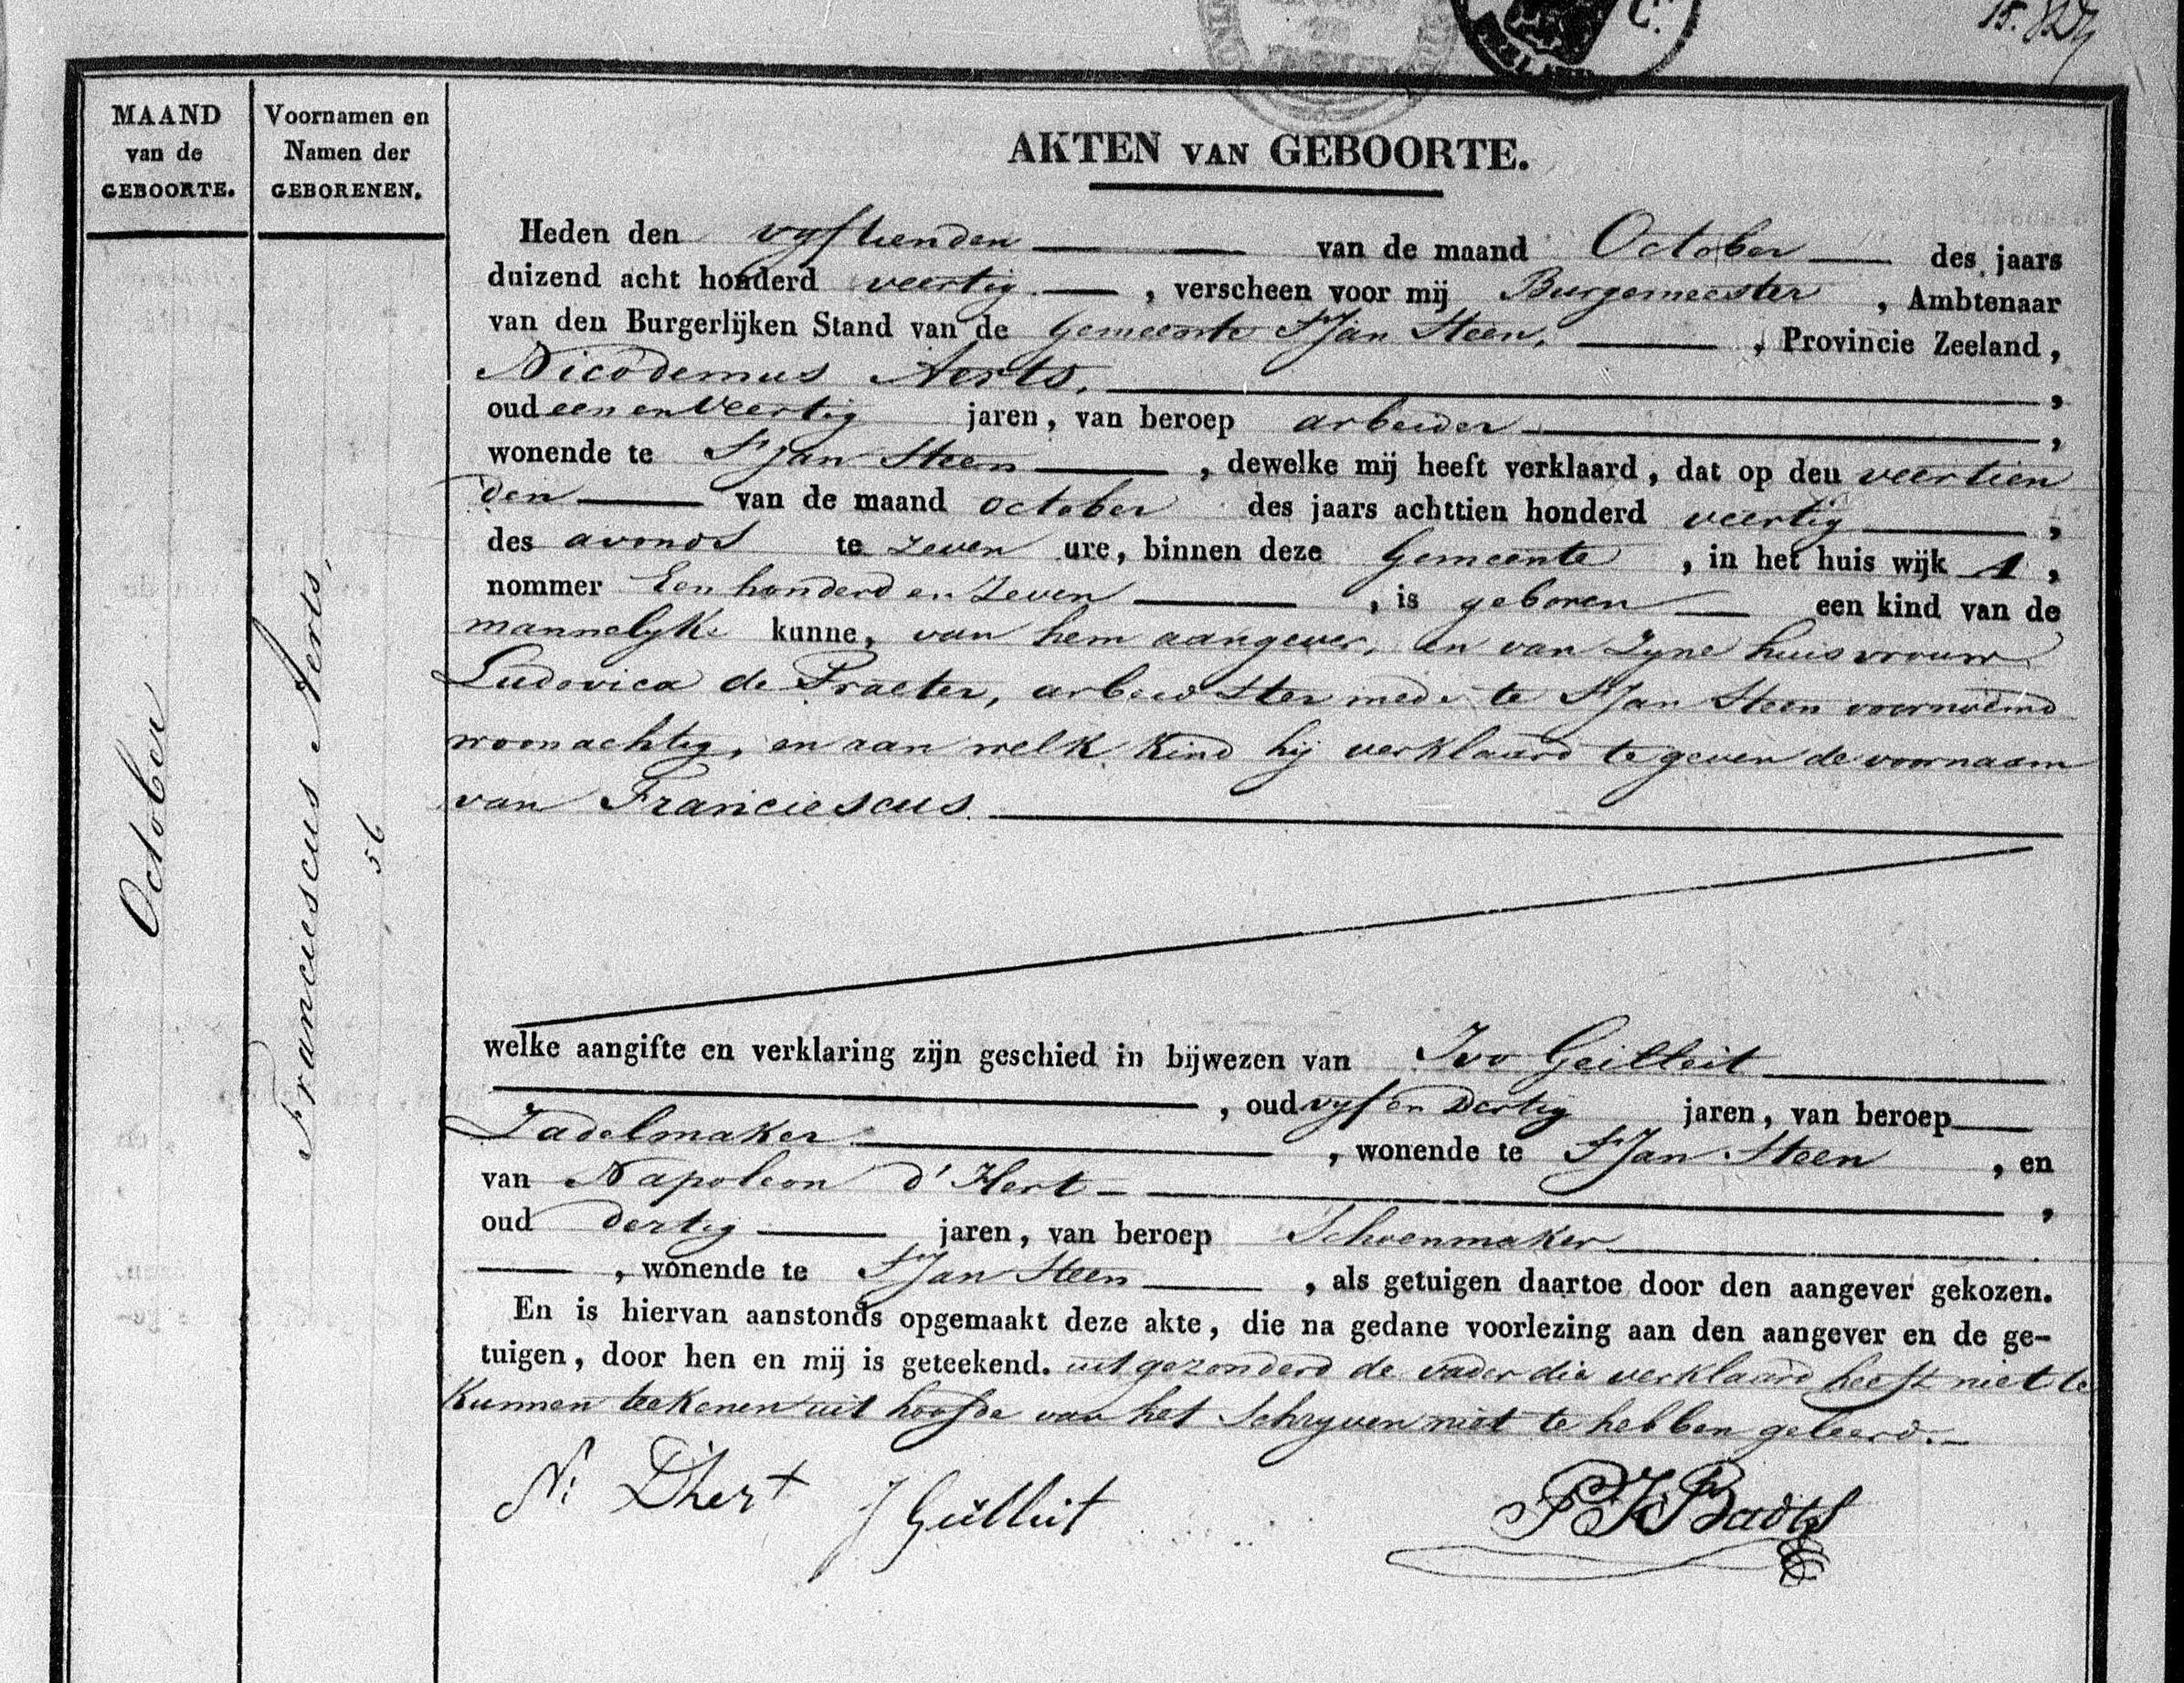 MAAND
van de
GEBOORTE.
Voornamen en
Namen der
GEBORENEN.
October
Franciescus Aerts,
56
AKTEN VAN GEBOORTE.
Heden den vyftienden van de maand October des jaars
duizend acht honderd veertig , verscheen voor mij Burgemeester , Ambtenaar
van den Burgerlijken Stand van de Gemeente St Jan Steen, , Provincie Zeeland,
Nicodemus Aerts, ,
oud een en veertig jaren, van beroep arbeider ,
wonende te St Jan Steen , dewelke mij heeft verklaard, dat op den veertien
den van de maand october des jaars achttien honderd veertig ,
des avonds te zeven ure, binnen deze Gemeente , in het huis wijk 1 ,
nommer Een honderd en Zeven , is geboren een kind van de
mannelyke kunne, van hem aangever, en van Zyne huisvrouw
Ludovica de Praeter, arbeidster mede te St Jan Steen voornoemd
woonachtig, en aan welk Kind hij verklaard te geven de voornaam
van Franciescus.
welke aangifte en verklaring zijn geschied in bijwezen van Ivo Geilleit
, oud vyf en Dertig jaren, van beroep
Zadelmaker , wonende te St Jan Steen , en
van Napoleon d'Hert ,
oud dertig jaren, van beroep Schoenmaker
, wonende te St Jan Steen , als getuigen daartoe door den aangever gekozen.
En is hiervan aanstonds opgemaakt deze akte, die na gedane voorlezing aan den aangever en de ge-
tuigen, door hen en mij is geteekend. uitgezonderd de vader die verklaard heeft niet te
Kunnen teekenen uit hoofde van het Schryven niet te hebben geleerd.
N: Dhert J Geilleit P J Badts